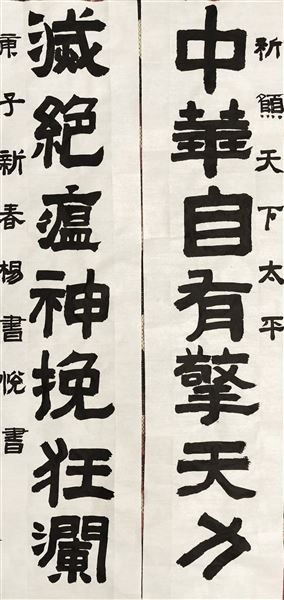 祈願天下太平
中華自有擎天力
滅絶瘟神挽狂瀾
庚子新春楊書悅書